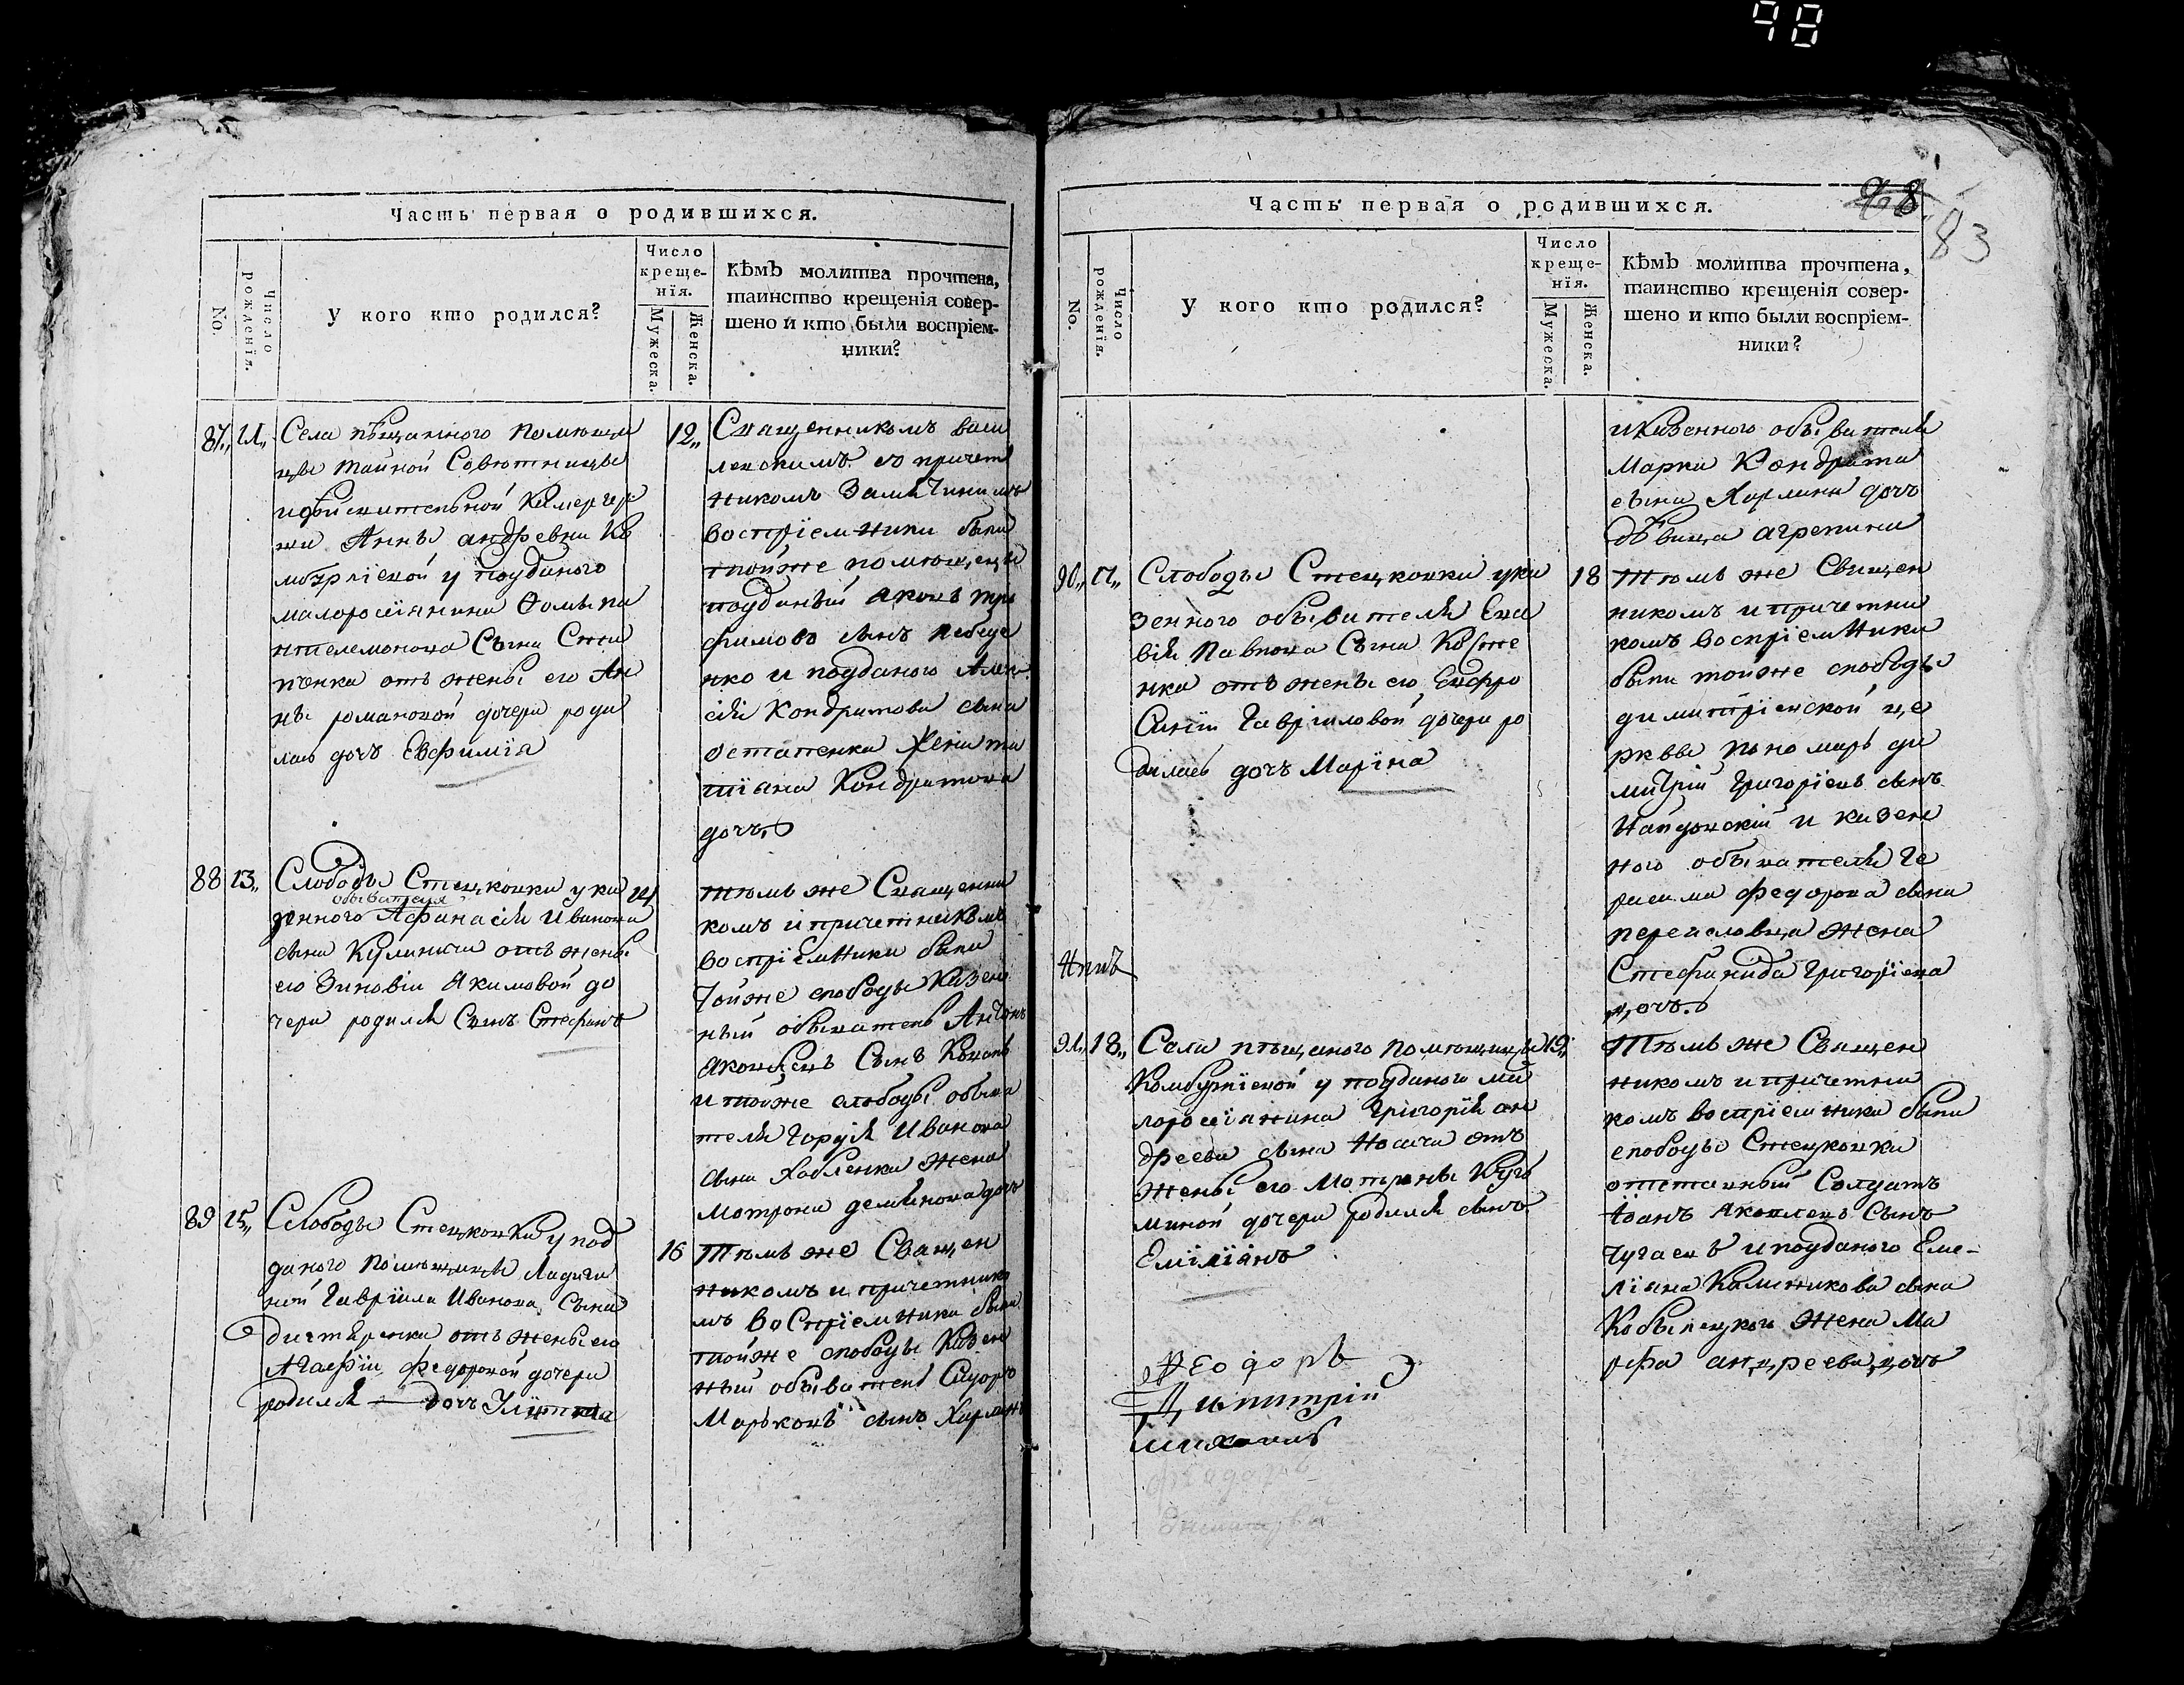 98
Часть первая о родившихся.
No.
Число рожденїя.
У кого кто родился?
Число креще-нїя.
Мужеска.
Женска.
Кѣмъ молитва прочтена,
таинство крещенія совер-
шено и кто были воспріем-
ники?
87
11
Села пѣщанного помѣщи
цы тайной Совѣтницы
и дѣйствительной Камергер
ши Анны андревны Ко
мбурлїевой у подданого
малоросіянина Фомы па
нтелемонова Сына Сти
пченка отъ жены его Ан
ны романовой дочери роди
лась дочъ Евфимїя
12
Священникомъ васи
левскимъ со причет
никомъ Замятинимъ
воспріемники были
тойже помѣщици
подданый яковъ тро
фимовъ сынъ лебеде
нко и подданого Алек
сія Кондратова сына
остапенка
Кондратова
дочъ
88
13
Слободы Стецковки у ка
обывателя
зенного Афанасія Иванова
сына Кулинича отъ жены
его Зиновіи Акимовой до
чери родился Сынъ Стефанъ
14
тѣмъ же Священни
комъ и причетникомъ
воспріемники были
тойже слободы Казен
ный обыватель Антонъ
яковлевъ Сынъ Коваль
и тойже слободы обыва
теля Гордія Иванова
сына Хавленка жена
Мотрона демянова дочъ
89
15
Слободы Стецковки у под
даного помѣщицы Ладыги
ной Гавріила Иванова Сына
Дигтяренка отъ жены его
Агафіи федоровой дочери
родился дочъ Улитта
16
Тѣмъ же Священ
никомъ и причетнико
мъ воспріемники были
тойже слободы Казен
ный обыватель Сидоръ
Марковъ сынъ Харлан
Часть первая о родившихся.
98
83
No.
Число рожденїя.
У кого кто родился?
Число креще-нїя.
Мужеска.
Женска.
Кѣмъ молитва прочтена,
таинство крещенія совер-
шено и кто были воспріем-
ники?
и Казенного обывателя
Марка Кондрата
сына Харлана дочъ
дѣвица агрепина
90
17
Слободы Стецковки у ка
зенного обывателя Евсе
вія Павлова Сына Косте
нка отъ жены его Евфро
синіи Гавріиловой дочери ро
дилась дочъ Маріна
18
Тѣмъ же Священ
никомъ и причетни
комъ воспріемники
были тойже слободы
димитріевской це
рквы пономарь ди
митрій Григоріевъ сынъ
Найдовскій и казен
ного обывателя Ге
расима федорова сына
переясловца жена
Стефанида Григоріева
дочъ
91
18
Села пѣщаного помѣщицы
Комбурлїевой у подданого ма
лоросіянина Григорія ан
дреева сына Носача отъ
жены его Мотроны Кузь
миной дочери родился сынъ
Емїлїянъ
19
Тѣмъ же Священ
никомъ и причетни
комъ воспріемники были
слободы Стецковки
отставный Солдатъ
Іоанъ яковлевъ Сынъ
Чугаевъ и подданого Еме-
ліяна Калиникова сына
Кобылецкого жена Ма
рфа андреева дочъ
Феодоръ
Димитрій